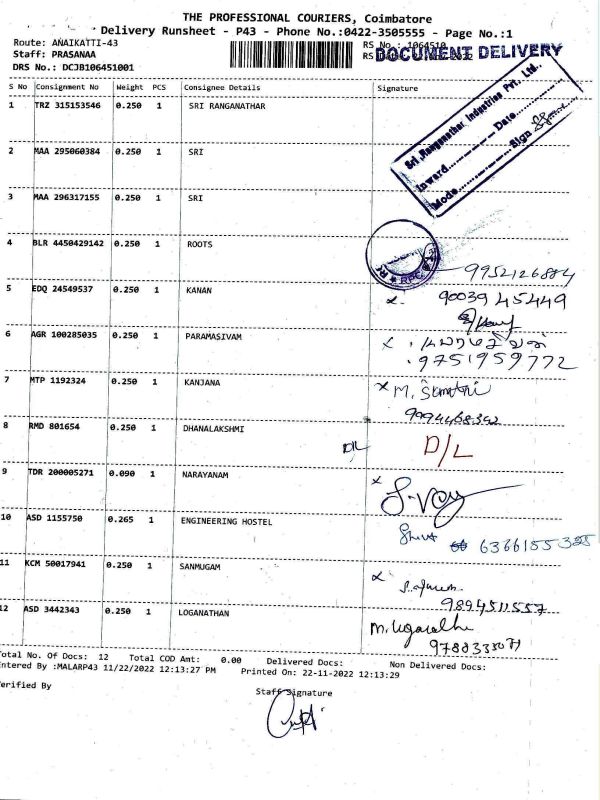 THE PROFESSIONAL COURIERS, Coimbatore
Delivery Runsheet - P43 - Phone No.:0422-3505555 - Page No.:1
Route: ANAIKATTI-43
RS No.: 1064510
Staff: PRASANAA
RS
DOCUMENT DELIVERY
DRS No.: DCJB106451001
S No Consignment No Weight PCS Consignee Details Signature
1 TRZ 315153546 0.250 1 SRI RANGANATHAR
Sri Ranganathar Industries Pvt. Ltd.,
Inward............Date............
Mode............Sign
2 MAA 295060384 0.250 1 SRI
3 MAA 296317155 0.250 1 SRI
4 BLR 4450429142 0.250 1 ROOTS
RPC
9952126884
5 EDQ 24549537 0.250 1 KANAN
x. 90039 45449
6 AGR 100285035 0.250 1 PARAMASIVAM
x
.9751959772
7 MTP 1192324 0.250 1 KANJANA
x M. Sumathi
9994468342
8 RMD 801654 0.250 1 DHANALAKSHMI
D/L D/L
9 TDR 200005271 0.090 1 NARAYANAM
x
10 ASD 1155750 0.265 1 ENGINEERING HOSTEL
Shiva 6366155325
11 KCM 50017941 0.250 1 SANMUGAM
x
9894511557
12 ASD 3442343 0.250 1 LOGANATHAN
Total No. Of Docs: 12 Total COD Amt: 0.00 Delivered Docs: Non Delivered Docs:
Entered By :MALARP43 11/22/2022 12:13:27 PM Printed On: 22-11-2022 12:13:29
Verified By
Staff Signature